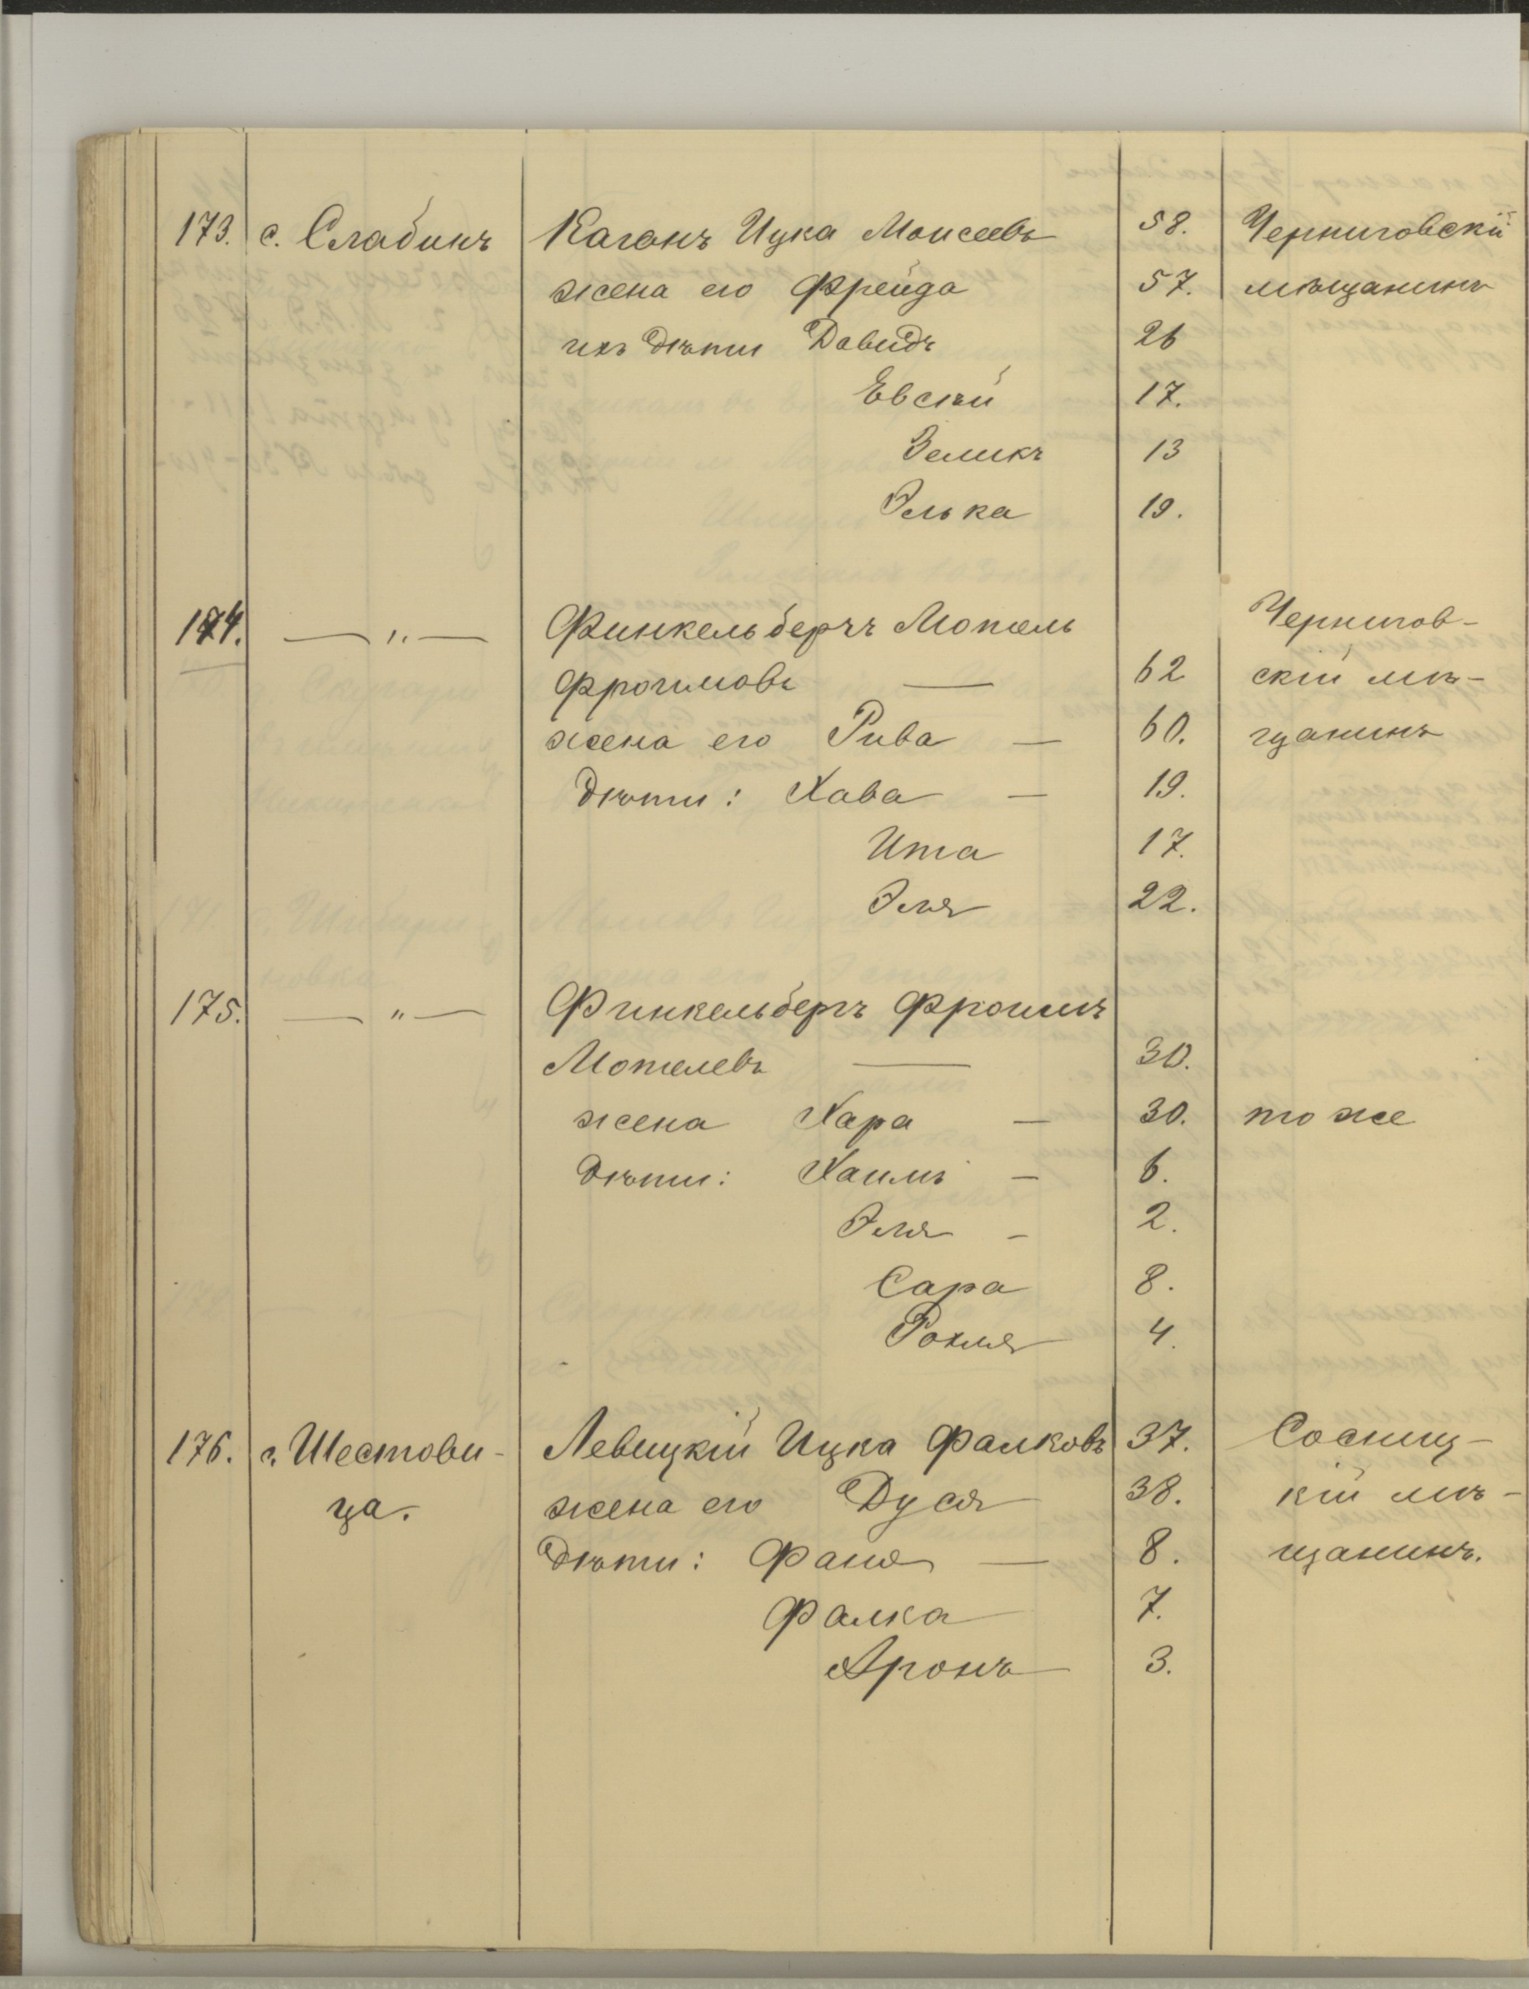 173. с. Слабинъ Каганъ Ицка Моисеевъ 58. Черниговскій
жена его Фрейда 57. мѣщанинъ
ихъ дѣти Давидъ 26
Евсѣй 17.
Зеликъ 13
Элька 19.
174. — " — Финкельбергъ Мотель Чернигов-
Фроимовъ — 62 скій мѣ-
жена его Рива — 60. щанинъ
Дѣти: Хава — 19.
Ита 17.
Эля 22.
175. — " — Финкельбергъ Фроимъ
Мотелевъ — 30.
жена Хара — 30. тоже
Дѣти: Хаимъ — 6.
Эля — 2.
Сара 8.
Рохля 4.
176. с. Шестови- Левицкій Ицка Фалковъ 37. Сосниц-
ца. жена его Дуся 38. кій мѣ-
Дѣти: Фаня — 8. щанинъ.
Фалка 7.
Аронъ 3.